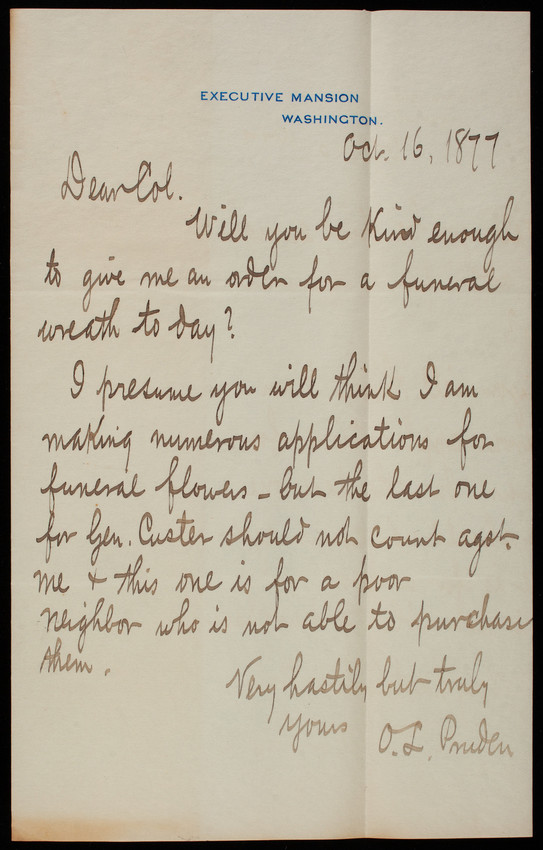 EXECUTIVE MANSION
WASHINGTON.
Oct. 16, 1877
Dear Col.
Will you be kind enough
to give me an order for a funeral
wreath to day?
I presume you will think I am
making numerous applications for
funeral flowers - but the last one
for Gen. Custer should not count agst.
me & this one is for a poor
neighbor who is not able to purchase
them.
Very hastily but truly
yours O. L. Pruden